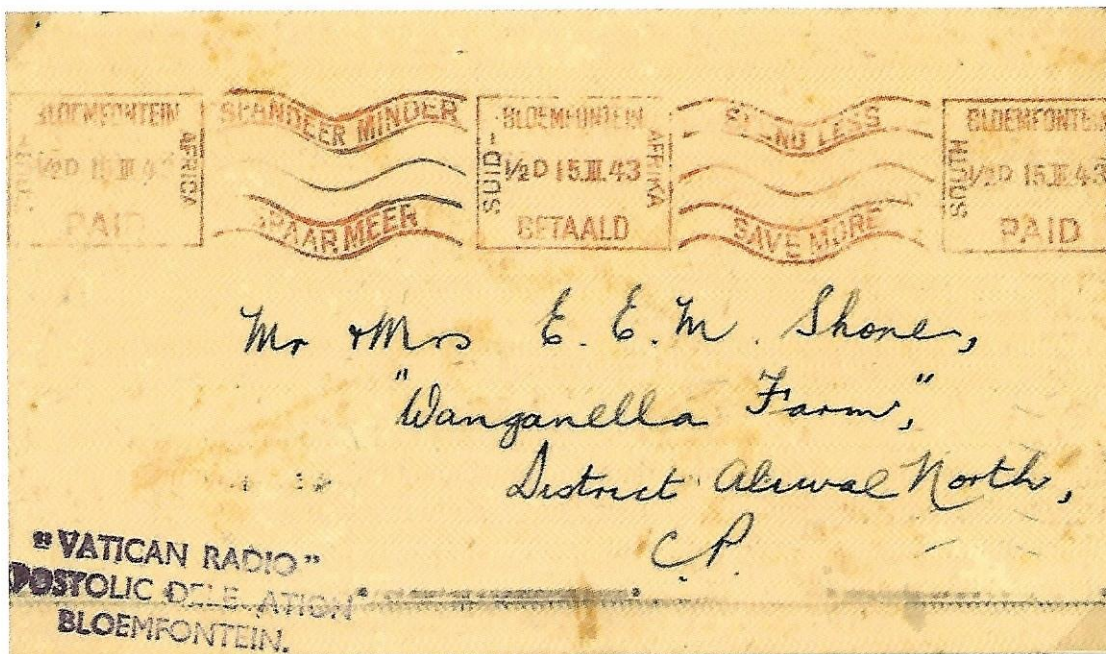 BLOEMFONTEIN
½D 15.III.43
PAID
AFRICA
SPANDEER MINDER
SPAAR MEER
SUID-
BLOEMFONTEIN
½D 15.III.43
BETAALD
AFRIKA
SPEND LESS
SAVE MORE
SOUTH
BLOEMFONTEIN
½D 15.III.43
PAID
Mr & Mrs E. E. M. Shone,
"Wanganella Farm",
District Aliwal North,
C.P.
"VATICAN RADIO"
APOSTOLIC DELEGATION
BLOEMFONTEIN.